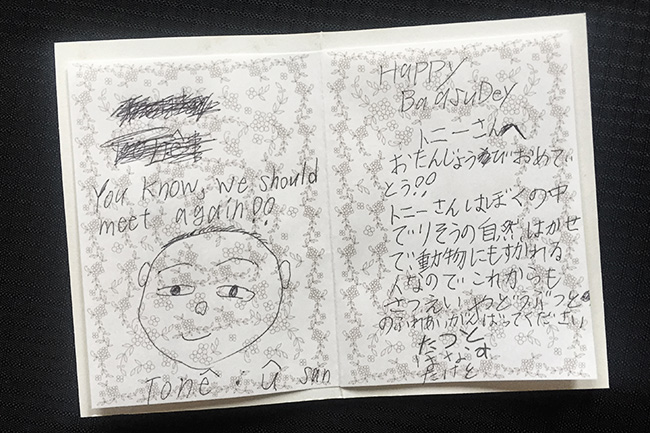 You know, we should
meet again!!
Tonê・Û san
Happy
BaasuDey
トニーさんへ
おたんじょうびおめで
とう!!
トニーさんはぼくの中
でりそうの自然はかせ
で動物にもすかれる
人なのでこれからも
さつえいやどうぶつと
のふれあいがんばってください
たつと